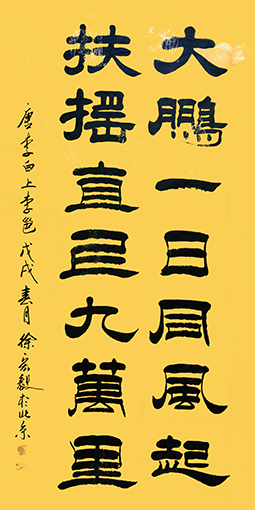 大鹏一日同風起
扶摇直上九萬里
唐李白上李邕 戊戌春月 徐宏毅於北京